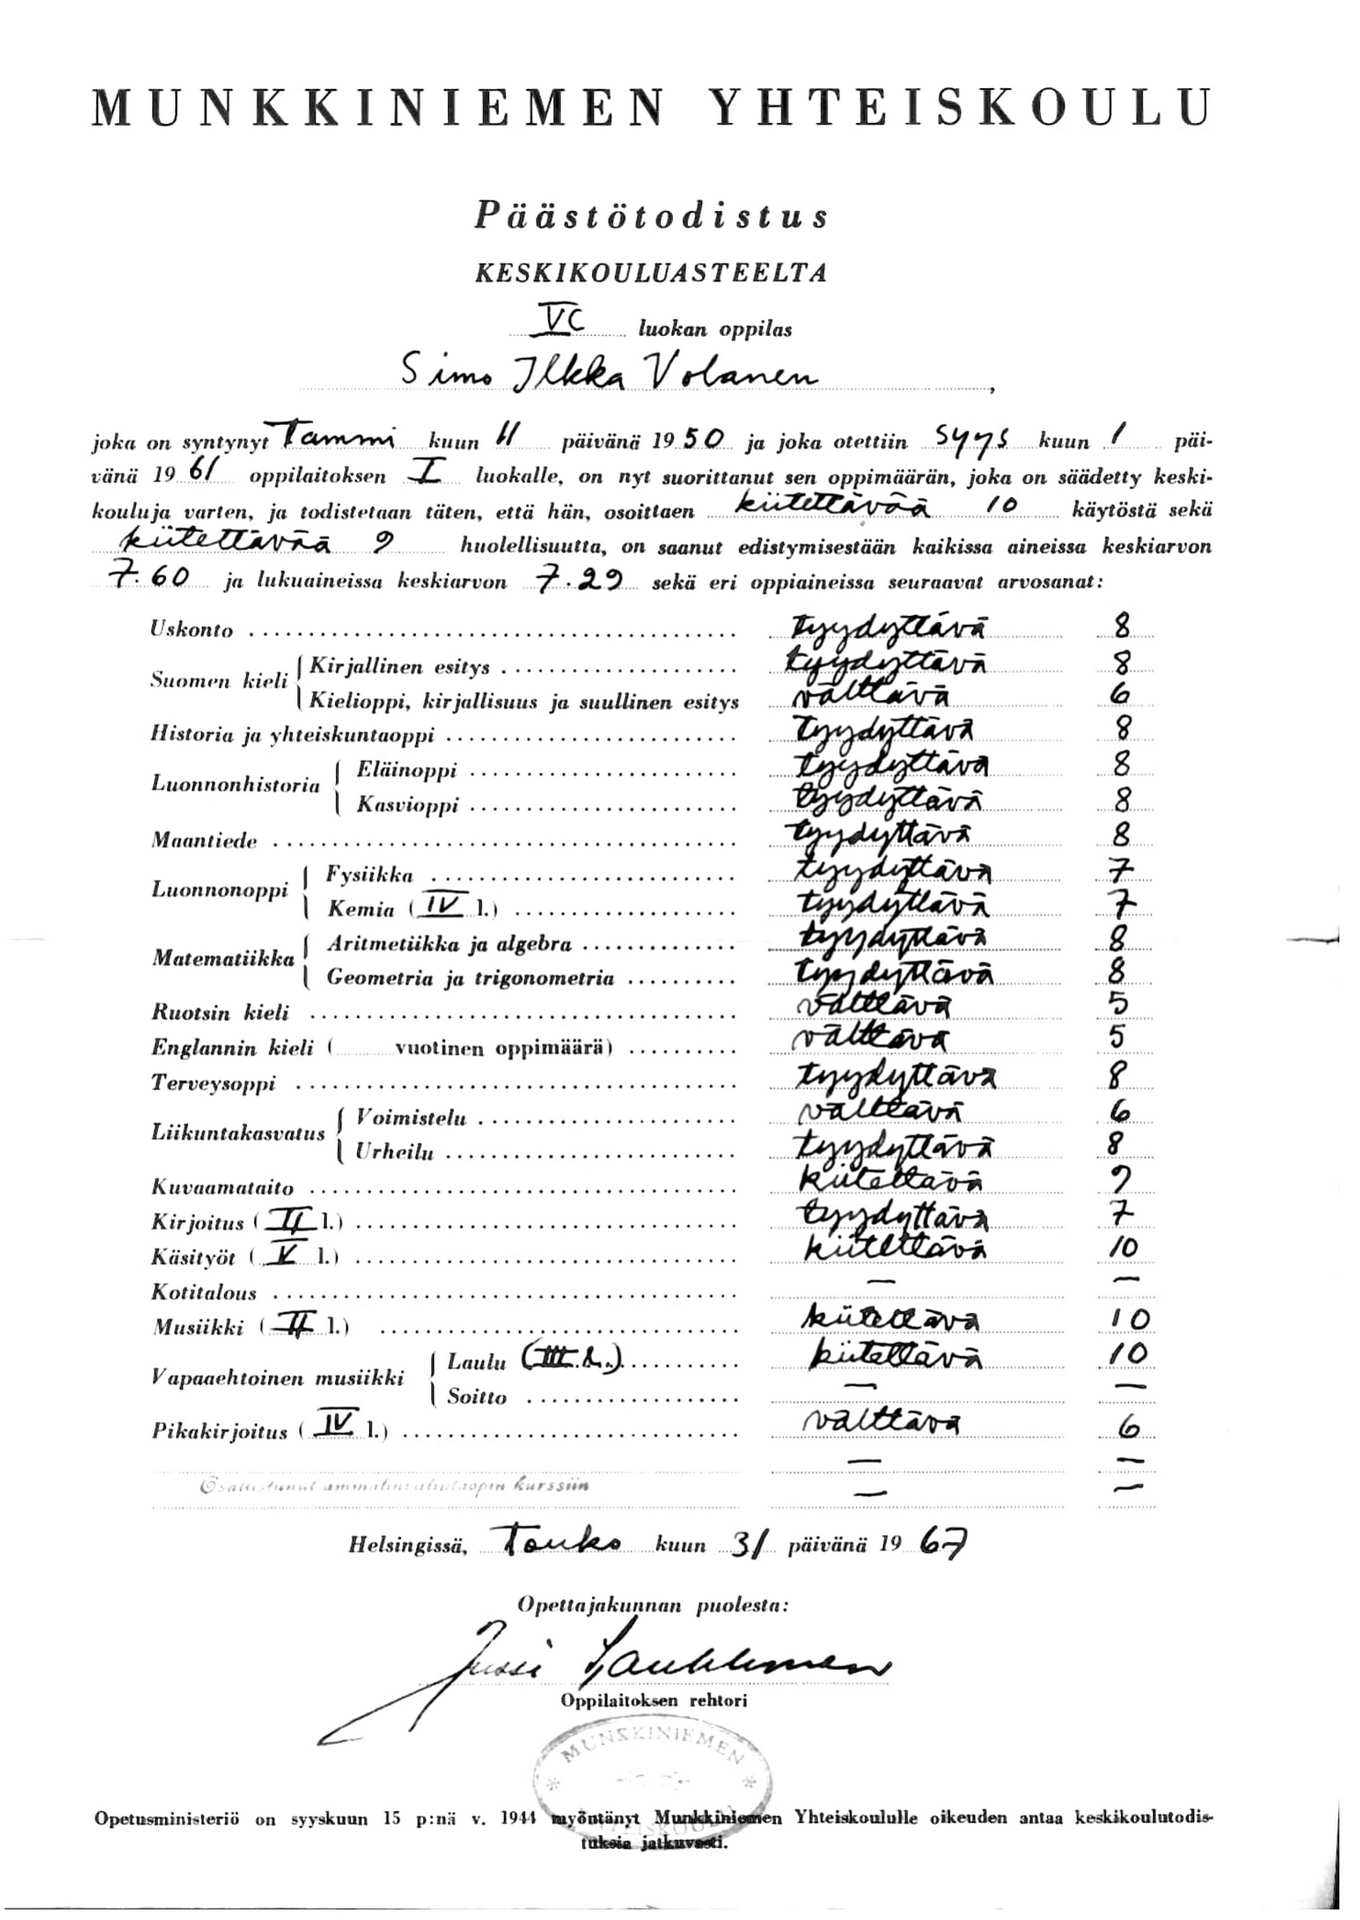 MUNKKINIEMEN YHTEISKOULU
Päästötodistus
KESKIKOULUASTEELTA
VC luokan oppilas
Simo Ilkka Volanen,
joka on syntynyt Tammi kuun 11 päivänä 1950 ja joka otettiin syys kuun 1 päi-
vänä 1961 oppilaitoksen I luokalle, on nyt suorittanut sen oppimäärän, joka on säädetty keski-
kouluja varten, ja todistetaan täten, että hän, osoittaen kiitettävää 10 käytöstä sekä
kiitettävää 9 huolellisuutta, on saanut edistymisestään kaikissa aineissa keskiarvon
7.60 ja lukuaineissa keskiarvon 7.29 sekä eri oppiaineissa seuraavat arvosanat:
Uskonto tyydyttävä 8
Suomen kieli Kirjallinen esitys tyydyttävä 8
Kielioppi, kirjallisuus ja suullinen esitys välttävä 6
Historia ja yhteiskuntaoppi tyydyttävä 8
Luonnonhistoria Eläinoppi tyydyttävä 8
Kasvioppi tyydyttävä 8
Maantiede tyydyttävä 8
Luonnonoppi Fysiikka tyydyttävä 7
Kemia (IV l.) tyydyttävä 7
Matematiikka Aritmetiikka ja algebra tyydyttävä 8
Geometria ja trigonometria tyydyttävä 8
Ruotsin kieli välttävä 5
Englannin kieli ( vuotinen oppimäärä) välttävä 5
Terveysoppi tyydyttävä 8
Liikuntakasvatus Voimistelu välttävä 6
Urheilu tyydyttävä 8
Kuvaamataito kiitettävä 9
Kirjoitus (II l.) tyydyttävä 7
Käsityöt (V l.) kiitettävä 10
Kotitalous — —
Musiikki (II l.) kiitettävä 10
Vapaaehtoinen musiikki Laulu (III l.) kiitettävä 10
Soitto — —
Pikakirjoitus (IV l.) välttävä 6
— —
Osallistunut ammatinvalintaopin kurssiin — —
Helsingissä, Touko kuun 31 päivänä 1967
Opettajakunnan puolesta:
Jussi Saukkonen
Oppilaitoksen rehtori
MUNKKINIEMEN
YHTEISKOULU
Opetusministeriö on syyskuun 15 p:nä v. 1944 myöntänyt Munkkiniemen Yhteiskoululle oikeuden antaa keskikoulutodis-
tuksia jatkuvasti.